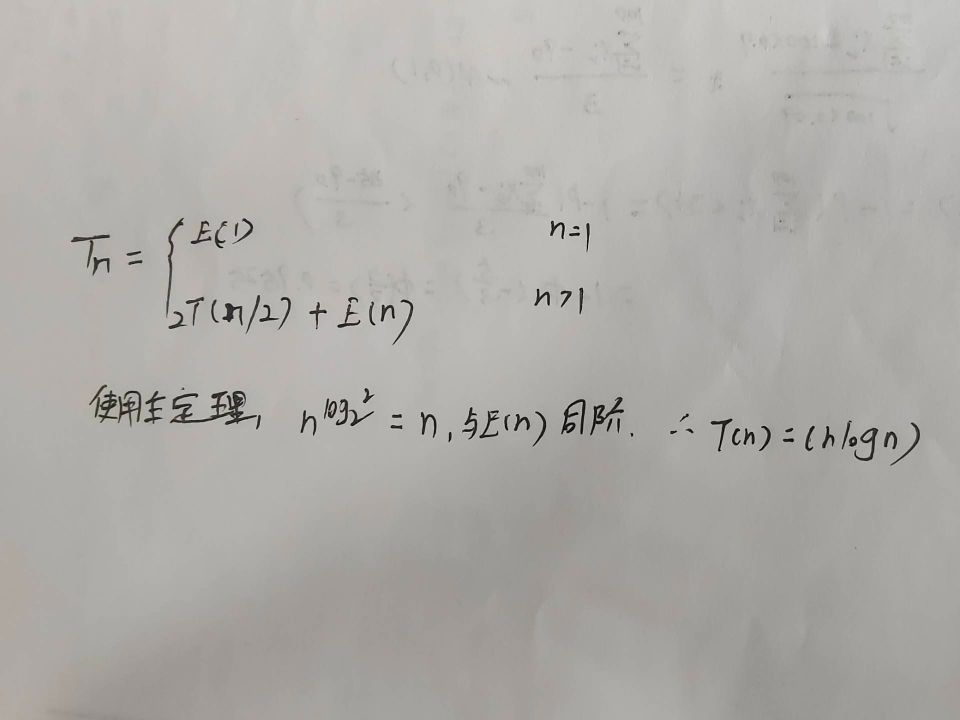 Tn = { E(1) n=1
2T(n/2) + E(n) n>1
使用主定理, n^log₂2 = n, 与E(n)同阶. ∴ T(n) = (nlogn)